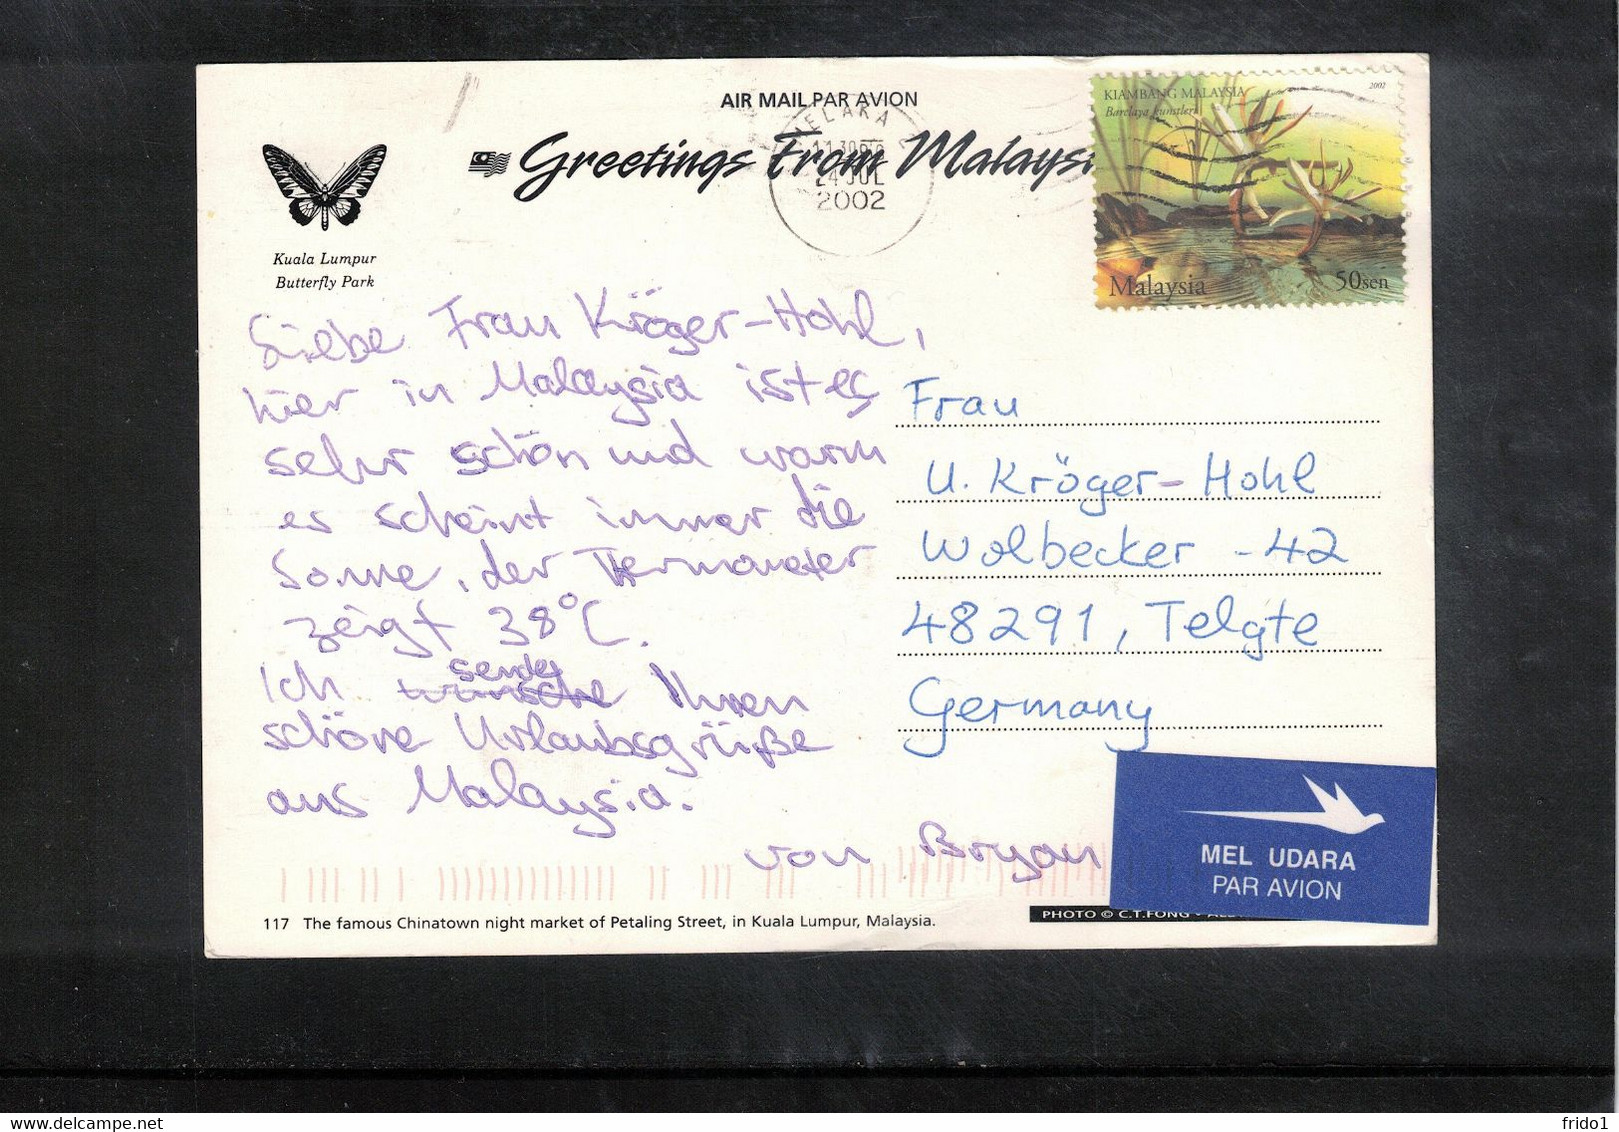 AIR MAIL PAR AVION
Greetings From Malaysi
MELAKA
24 JUL
2002
KIAMBANG MALAYSIA
Barclaya kunstleri
2002
Malaysia
50sen
Kuala Lumpur
Butterfly Park
Liebe Frau Kröger-Hohl,
hier in Malaysia ist es
sehr schön und warm
es scheint immer die
Sonne, der Thermometer
zeigt 38°C.
Ich sende Ihnen
schöne Urlaubsgrüße
aus Malaysia.
von Bryan
Frau
U. Kröger-Hohl
Wolbecker -42
48291, Telgte
Germany
MEL UDARA
PAR AVION
117 The famous Chinatown night market of Petaling Street, in Kuala Lumpur, Malaysia.
PHOTO © C.T.FONG
delcampe.net
frido1